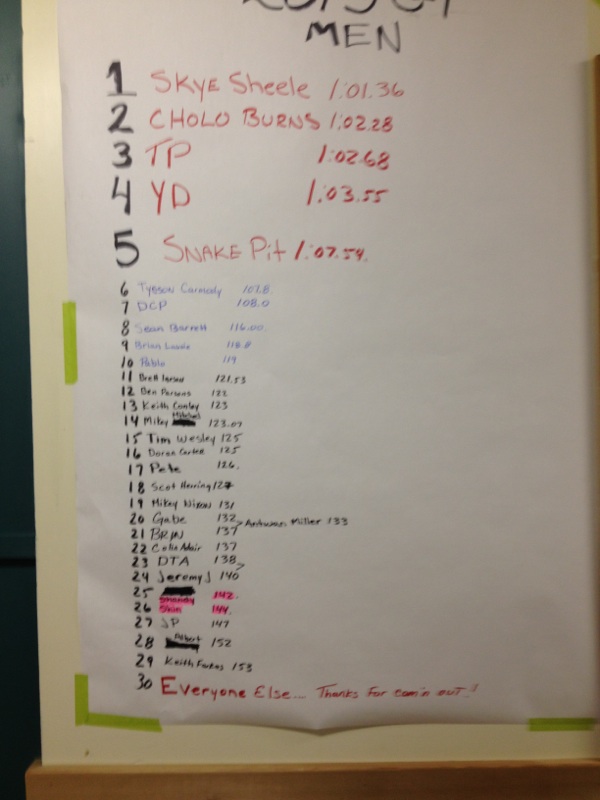 MEN
1 SKYE Sheele 1:01.36
2 CHOLO BURNS 1:02.28
3 TP 1:02.68
4 YD 1:03.55
5 SNAKE Pit 1:07.54
6 Tyson Carmody 107.8
7 DCP 108.0
8 Sean Barnett 116.00
9 Brian 118.8
10 Pablo 119
11 Brett Larson 121.53
12 Ben Parsons 122
13 Keith Conley 123
14 Mikey Mitchell 123.07
15 Tim Wesley 125
16 Doran Carter 125
17 Pete 126.
18 Scot Herring 127
19 Mikey Nixon 131
20 Gabe 132 Antwan Miller 133
21 BRIN 137
22 Colin Adair 137
23 DTA 138
24 Jeremy J 140
25 Shandy 142.
26 Skin 144.
27 JP 147
28 Albert 152
29 Keith Farkas 153
30 Everyone Else.... Thanks for comin out!!